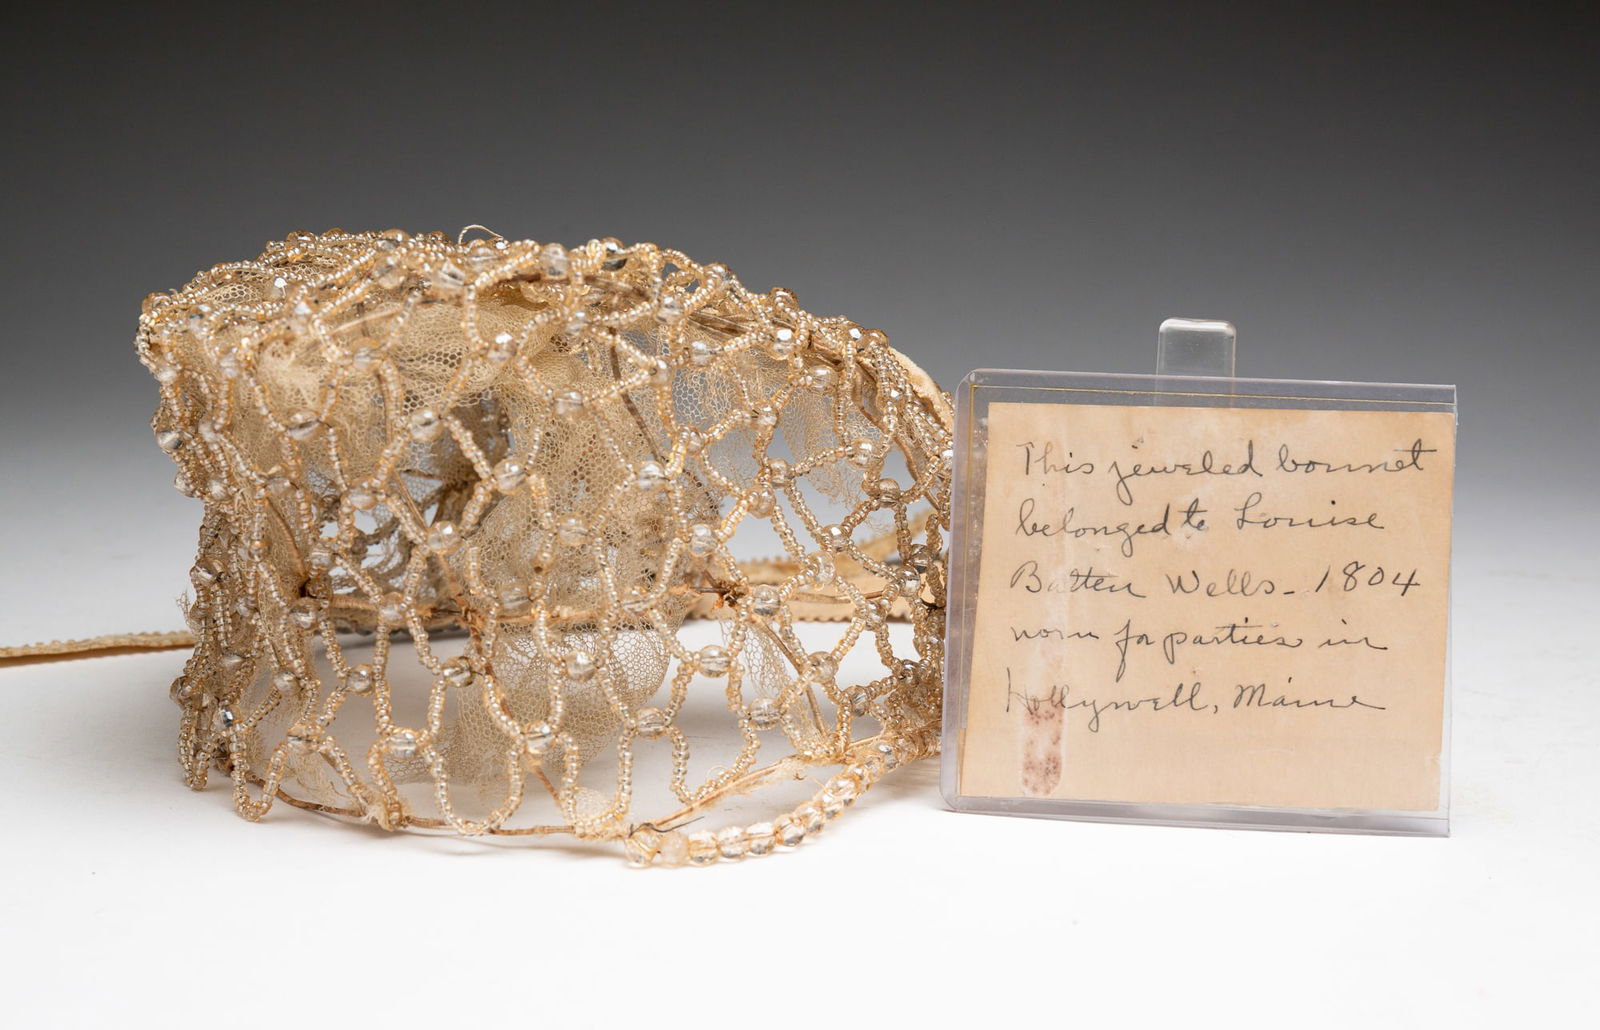 This jeweled bonnet
belonged to Louise
Batten Wells - 1804
worn for parties in
Hollywell, Maine